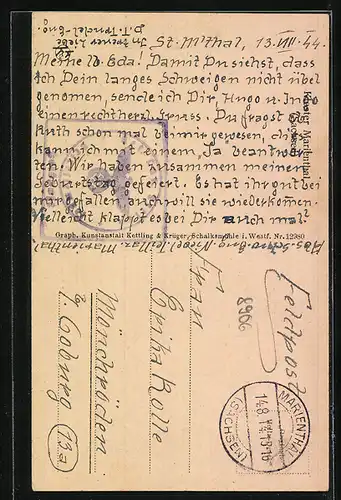 St. M'thal, 13. VIII. 44.
Meine lb. Eda! Damit Du siehst, dass
ich Dein langes Schweigen nicht übel
genommen, sende ich Dir, Hugo u. Inge
einen recht herzl. Gruss. Du fragst ob
Ruth schon mal bei mir gewesen, dies
kann ich mit einem „Ja" beantwor-
ten. Wir haben zusammen meinen
Geburtstag gefeiert. Es hat ihr gut bei
mir gefallen, auch will sie wiederkommen.
Vielleicht klappt es bei Dir auch mal
In treuer Liebe
Kloster Marienthal
Graph. Kunstanstalt Kettling & Krüger, Schalksmühle i. Westf. Nr. 12980
Feldpost
8906
Frau
Erika Rolle
Mönchröden
b. Coburg
13a
MARIENTHAL
14.8.44.18
(SACHSEN)